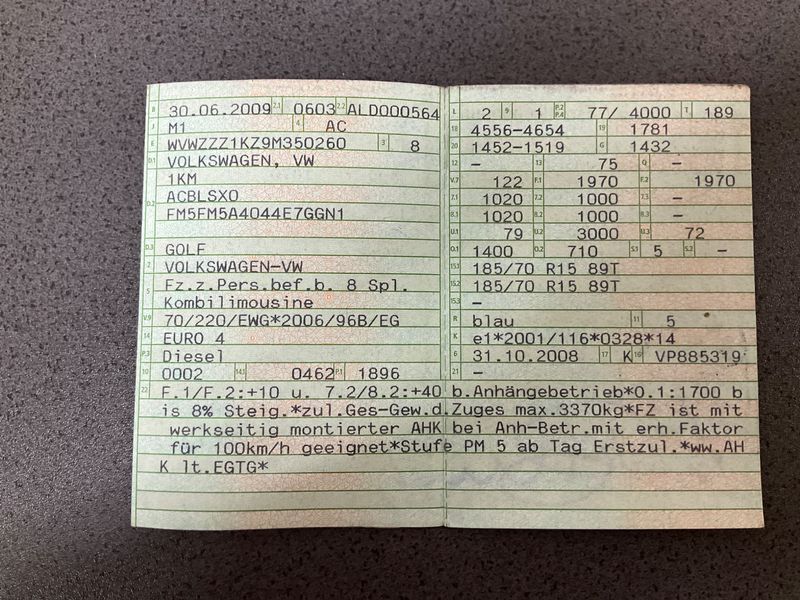 B 30.06.2009 2.1 0603 2.2 ALD000564
J M1 4 AC
E WVWZZZ1KZ9M350260 3 8
D.1 VOLKSWAGEN, VW
1KM
D.2 ACBLSX0
FM5FM5A4044E7GGN1
D.3 GOLF
2 VOLKSWAGEN-VW
5 Fz.z.Pers.bef.b. 8 Spl.
Kombilimousine
V.9 70/220/EWG*2006/96B/EG
14 EURO 4
P.3 Diesel
10 0002 14.1 0462 P.1 1896
L 2 9 1 P.2 P.4 77/ 4000 T 189
18 4556-4654 19 1781
20 1452-1519 G 1432
12 - 13 75 Q -
V.7 122 F.1 1970 F.2 1970
7.1 1020 7.2 1000 7.3 -
8.1 1020 8.2 1000 8.3 -
U.1 79 U.2 3000 U.3 72
O.1 1400 O.2 710 S.1 5 S.2 -
15.1 185/70 R15 89T
15.2 185/70 R15 89T
15.3 -
R blau 11 5
K e1*2001/116*0328*14
6 31.10.2008 17 K 16 VP885319
21 -
22 F.1/F.2:+10 u. 7.2/8.2:+40 b.Anhängebetrieb*O.1:1700 b
is 8% Steig.*zul.Ges-Gew.d.Zuges max.3370kg*FZ ist mit
werkseitig montierter AHK bei Anh-Betr.mit erh.Faktor
für 100km/h geeignet*Stufe PM 5 ab Tag Erstzul.*ww.AH
K lt.EGTG*